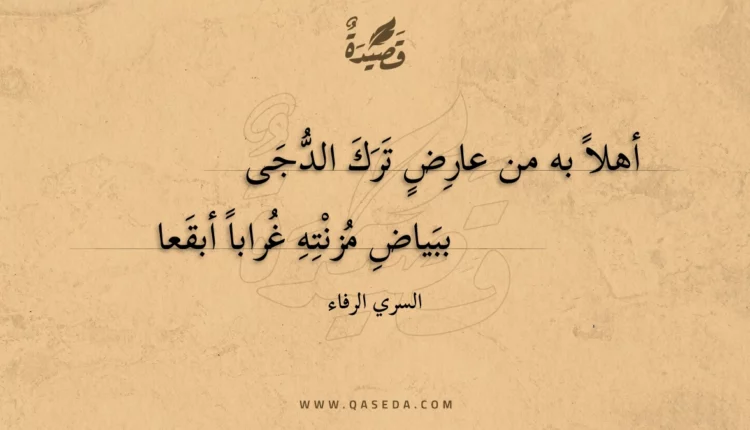 قَصِيْدَةٌ
أهلاً به من عارِضٍ تَرَكَ الدُّجَى
ببَياضِ مُزنْتِهِ غُراباً أبقَعا
السري الرفاء
WWW.QASEDA.COM